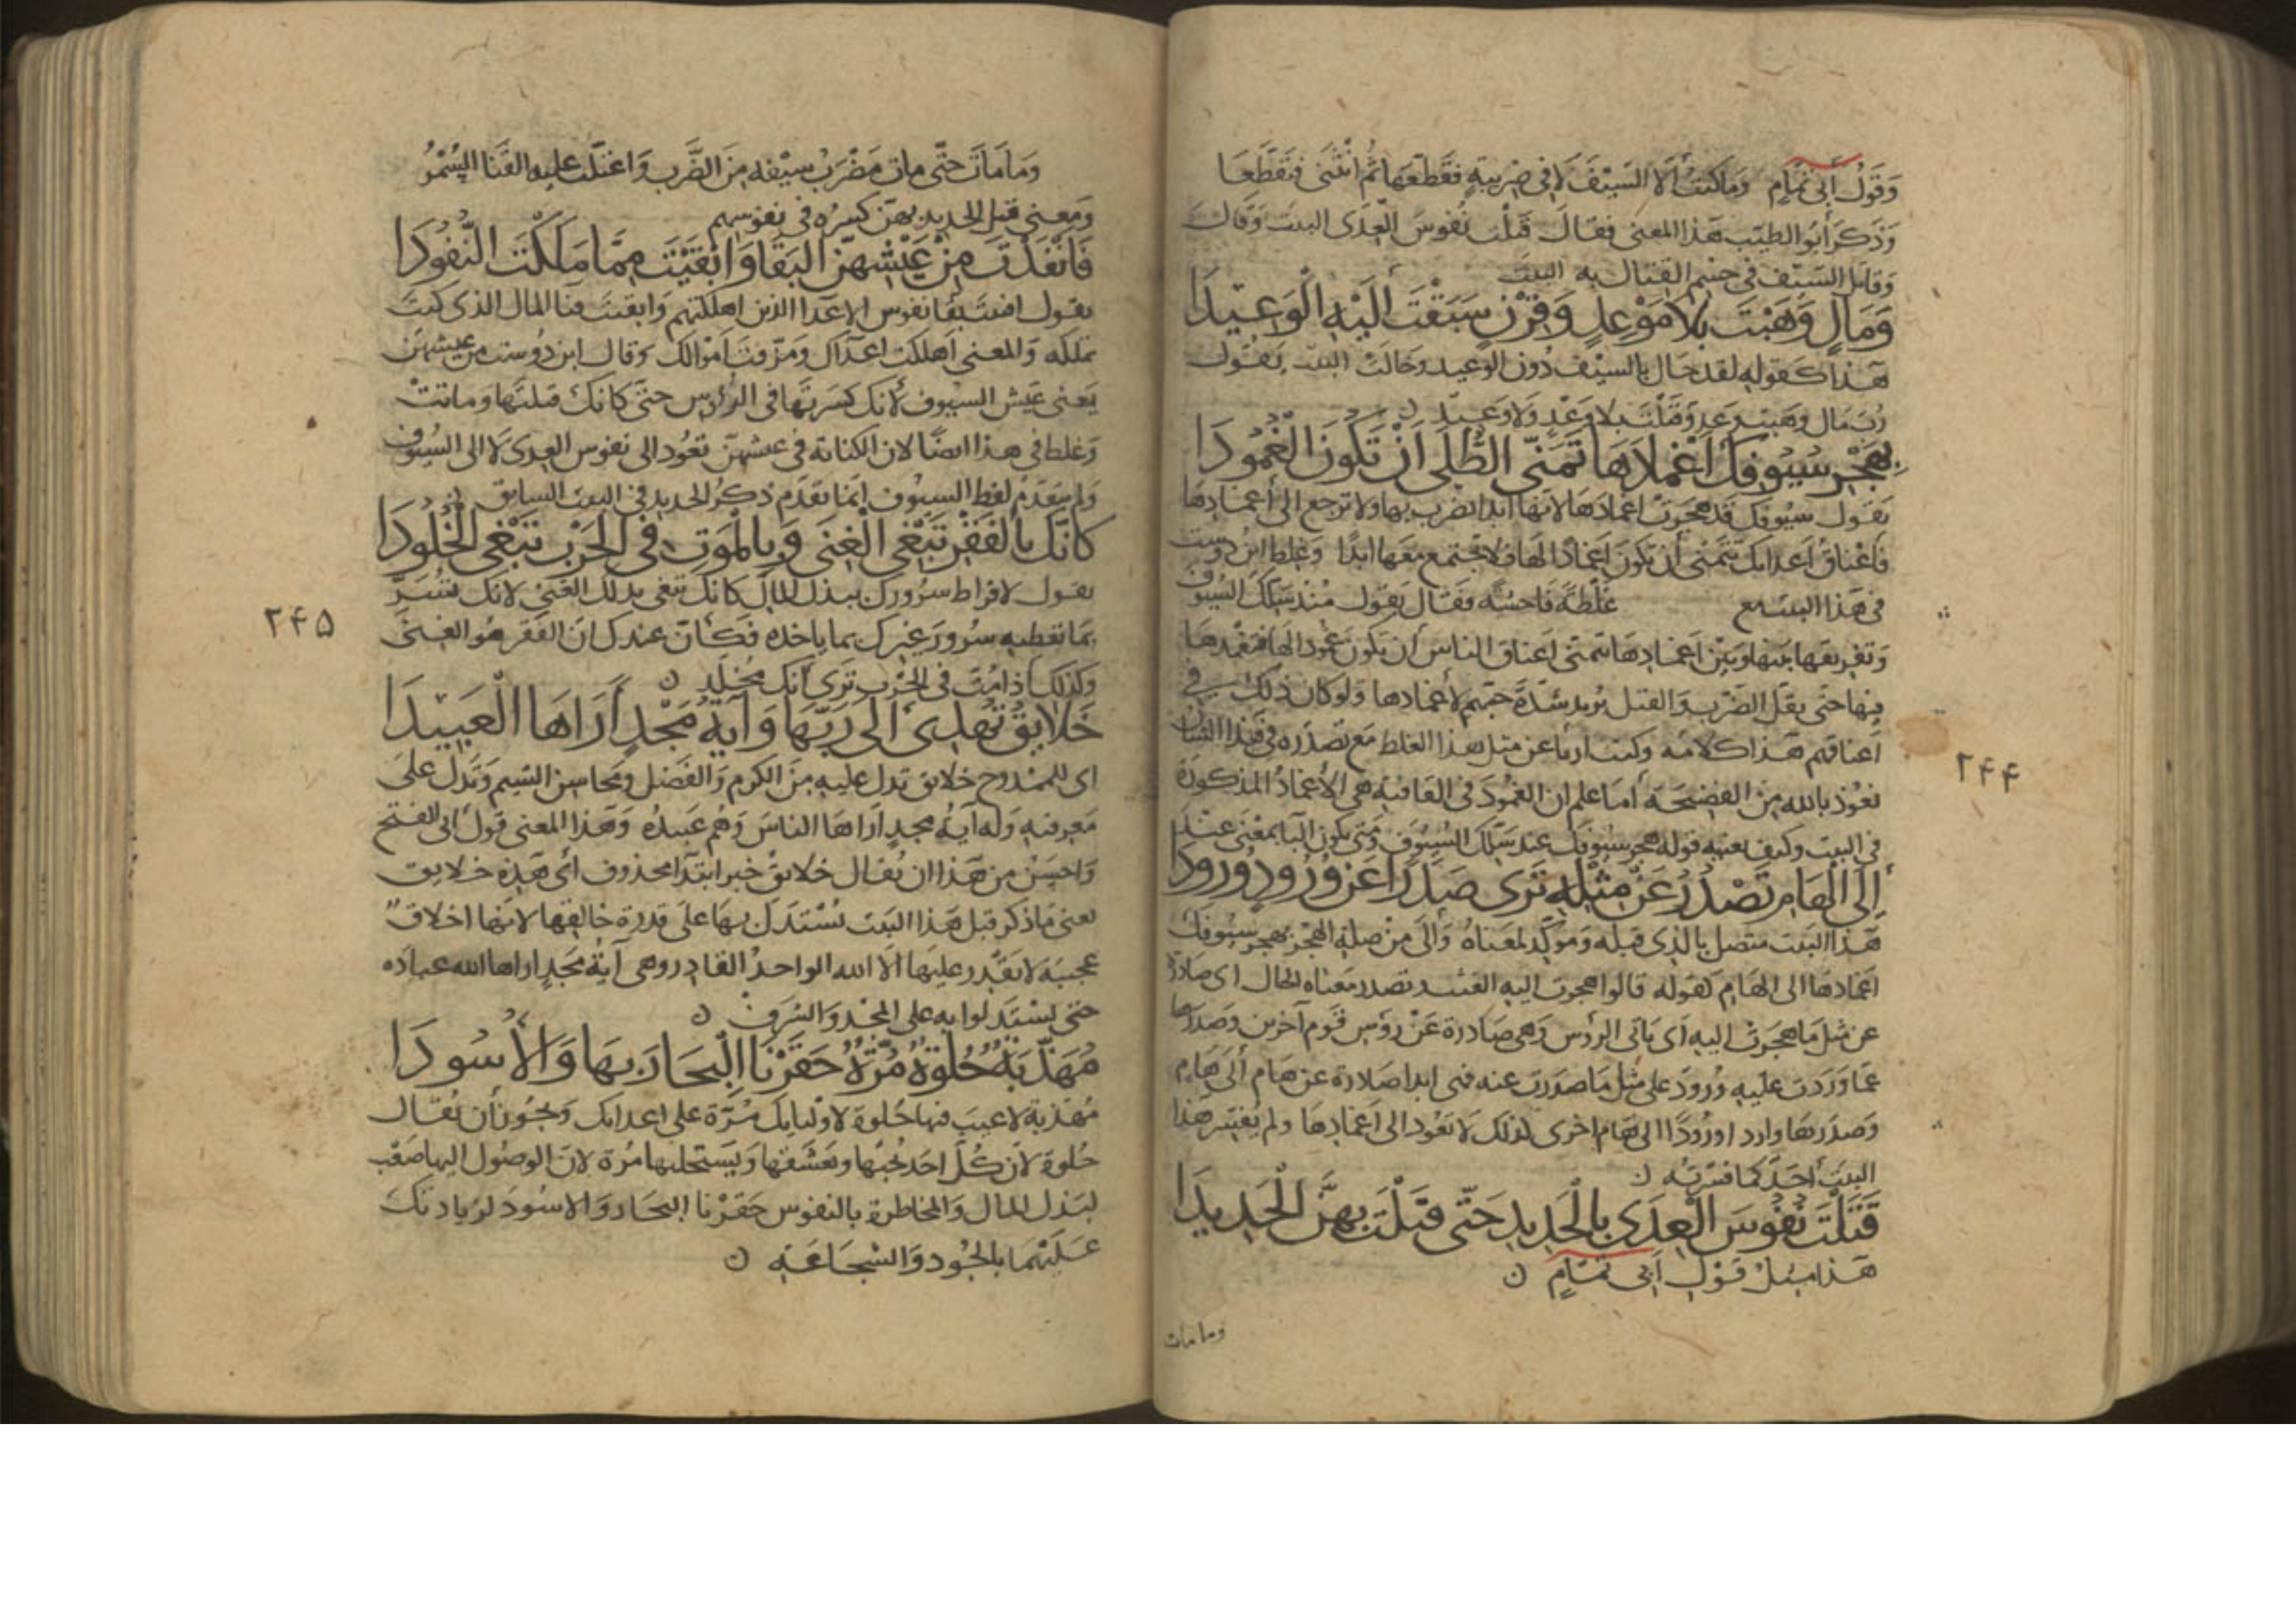 وَقَوْلُ أَبى تَمَامٍ وَمَا كنتَ أَلَا السَيْفَ لَا فى ضريبةٍ فقَطعَها ثُمَ انْثَنى فَتَقَطَّعَا
وَذكرَ أبُو الطيّب هَذا المعنى فقالَ قَتَلْت نُفوسَ العِدَى البيت وَقَالَ
وَقاتل السَيْف فى جسم القتال به البيت
وَمَالٍ وَهَبْتَ بِلَا مَوْعِدٍ وَقِرْنٍ سَبَقْتَ اِلَيْهِ الْوَعِيْدَا
هَذا كقوله لقد حَال بالسيْف دُون الوعيد وحَالَتْ البيت يَقُول
رُبَ مَال وهبته وَقتَلْتَ بلا وَعْدٍ وَلَا وَعِيْدٍ ن
بِهَجْرِ سُيُوفِكَ اَغْمَادَهَا تَمَنَّى الطُّلَى اَنْ تَكُونَ الْغُمُودَا
يَقول سيُوفك قَد هَجَرت اغمادَهَا لانّها ابدا تضرب بها ولا ترجع الى أعمادِهَا
فاعْناقُ اَعدائك تَتَمَنى أن تكونَ اَغمادًا لهَا فلا تجتمع مَعَها ابدًا وَغلِط ابن دوست
فى هَذا البيت مع غَلْطَةً فَاحشَةً فقَال يَقول مُنْذُ سَلكَ السُيوفَ
وَتفريقها بينها وَبَيْن اغمَادِهَا تتمنى اعنَاقُ الناس ان تكون غمُودا لهَا فتغمدهَا
فيها حَتى يقلّ الضرْب وَالقتل يُريد شدَّةَ حبّهم لاغمادها وَلو كان ذلك فى
اَعناقهم هَذا كلامه وكنت اربأ عن مثل هذا الغلط مَع تصَدّره فى هَذا الشان
نعُوذ بالله مِن الفضيحَة أما علم ان الغمُودَ فى القافية هى الأغمادُ المذكورَة
فى البيت وكيف قوله بهجر سيُوفك عند سَلّك السيُوفَ وَمَتى يكون البا بمعْنى عند
اِلَى الْهَامِ تَصْدُرُ عَنْ مِثْلِهِ تَرَى صَدَرًا عَنْ وُرُودٍ وُرُودَا
هَذا البَيت متصل بالذى قبله وَموكّد لمعناهُ وَالَى مِنْ صلة الهجْر بهجر سيُوفك
اغمادهَا الى الهَامِ كقوله قالوا هجرت اليه الغيث وتصدر معْناه الحال اى صَادرة
عن مثل مَا هجَرَت اليه أى يَاتى الرؤس وَهى صَادرَة عَنْ رؤس قوم آخرين وَصَدرهَا
عمّا وَرَدت عليه وُرودٌ على مثل مَا صدرت عنه فهى ابدا صَادرة عن هَام أَلَى هَامٍ
وَصَدَرهَا وارد اورُودًا الى هَام اخرى لذلك لَا تعُود الى أغمَادِهَا ولم يُفسّر هَذا
البيت أحَدٌ كما فسّرتُه ن
قَتَلْتَ نُفُوسَ الْعِدَى بِالْحَدِيدِ حَتّى قَتَلْتَ بِهِنَّ الْحَدِيدَا
هَذا مِثلُ قَوْلِ اَبِى تَمَامٍ ن
وما مات
۲۴۴
وَمَا مَاتَ حَتّى مات مَضْرَبُ سَيْفه مِنَ الضَّرب وَاعْتَلّت عليه القَنا السُمْرُ
وَمعنى قتل الحديد بهنّ كسرُه فى نفوسِهم
فَانْفَدْتَ مِنْ عَيْشِهِنَّ الْبَقَا وَاَبْقَيْتَ مِمَّا مَلَكْتَ النُّفُودَا
يقول افنيت بَقا نفوس الاعدَا الذين اهلكتهم وَابقيت فنَا المال الذى كنتَ
تملكه وَالمعنى أَهلكت اعدَآك وَمزّقت اموَالك وَقال ابن دُوست من عيشهنّ
يَعنى عَيْش السيُوف لأنك كسَرتهَا فى الرؤس حتىَ كانكَ قتلتَها وَماتتْ
وَغلط فى هذا ايضًا لان الكنَاية فى عيشهنّ تعُود الى نفوس العِدى لَا الى السيُوف
وَلم يتقدّم لفظ السيُوف اِنّما تقدّم ذكرُ الحديد فى البيت السابق ن
كَانَّكَ بِالْفَقْرِ تَبْغِى الْغِنَى وَبِالْمَوْتِ فِى الْحَرْبِ تَبْغِى الْخُلُودَا
يقول لافراط سرُورك ببذل المال كانك تبغى بذلك الغنى لانك تُسَرّ
بمَا تعطيه سُرورَ غيرك بما ياخذه فكأنّ عندك انّ الفقر هُو الغِنىَ
وكذلك اذا مُتَ فى الحَرب تَرى أنكَ مخَلّد ن
خَلَايِقُ تَهْدِى اَلَى رَبِّهَا وَآيَةُ مَجْدٍ اَرَاهَا الْعَبِيْدَا
اى للممدوح خلايق تدل عليه مِنَ الكرم وَالفَضل ومحَاسن الشيم وَتَدلُ علىَ
مَعرفته وَله آيةُ مجدٍ اَرَاهَا الناسَ وَهُم عَبيدُه وَهَذا المعنى قولُ ابى الفتح
وَاحسَنُ من هَذا ان يُقال خلايقُ خبر ابتدآ محذوف أى هَذه خلايق
يعنى مَا ذكر قبل هَذا البيت يُستَدَل بهَا على قدرة خالقها لانهَا اخلاقٌ
عجيبَة لا يَقْدر عليهَا الّا الله الواحدُ القادر وهى آيةُ مَجدٍ اراها الله عباده
حتى يستدلوا به على المجد وَالشرف ن
مُهَذَّبَةٌ حُلْوَةٌ مُرَّةٌ حَقَرْنَا الْبِحَارَ بِهَا وَالْأُسُودَا
مُهَذبة لاعيبَ فيها حُلوة لاوليايك مُرّة على اعدايك وَيجُوز أن يُقال
حُلوة لأن كُلّ احَد يُحبّها ويعشقها وَيَستحليها مُرّة لانّ الوصُول اليها صَعْب
لبَذل المال وَالمخاطرة بالنفوس حَقرنا البحَار وَالاسُودَ لزيادتك
عَلَيْهِمَا بالجُود وَالشجَاعَةِ ن
۲۴۵